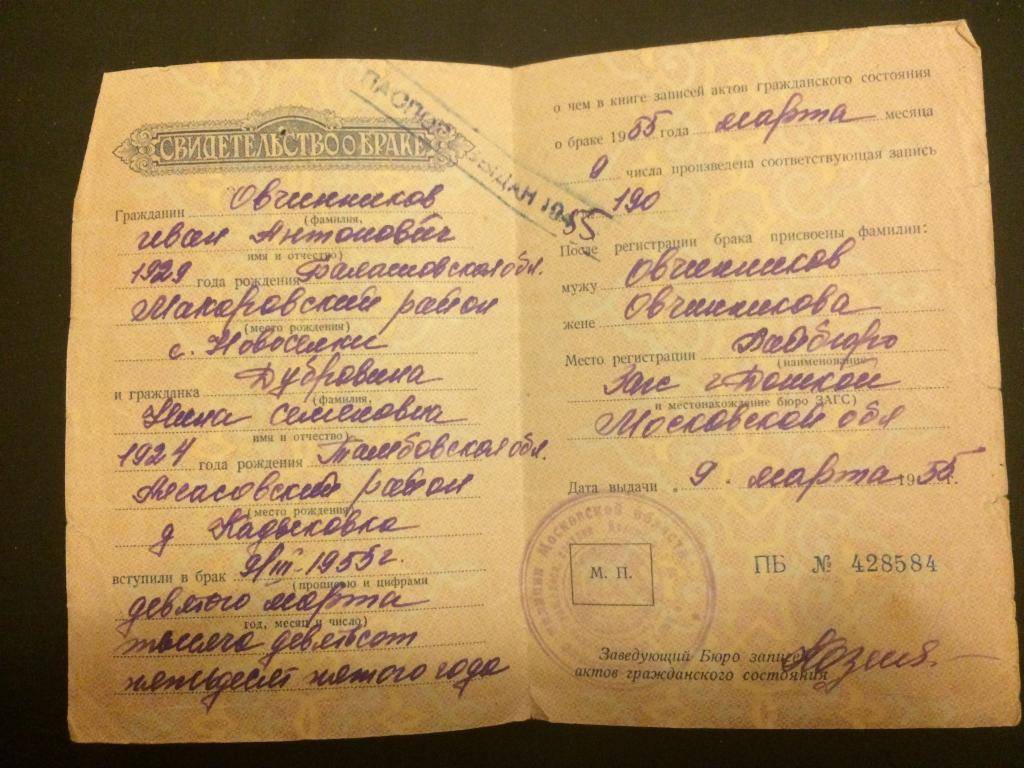 СВИДЕТЕЛЬСТВО О БРАКЕ
Гражданин Овчинников
(фамилия,
Иван Антонович
имя и отчество)
1929 года рождения Балашовская обл.
Макаровский район
(место рождения)
с. Новоселки
и гражданка Дубровина
(фамилия,
Нина Семеновна
имя и отчество)
1924 года рождения Тамбовская обл.
район
(место рождения)
д Кадыковка
вступили в брак 9/III-1955г.
(прописью и цифрами
девятого марта
год, месяц и число)
тысяча девятсот
пятьдесят пятого года
ПАСПОРТ ВЫДАН 1955
о чем в книге записей актов гражданского состояния
о браке 1955 года марта месяца
9 числа произведена соответствующая запись
190
После регистрации брака присвоены фамилии:
мужу Овчинников
жене Овчинникова
Место регистрации Райбюро
(наименование
Загс г.
и местонахождение бюро ЗАГС)
Московской обл
Дата выдачи „9" марта 1955 г.
Московской области
М. П.
ПБ № 428584
Заведующий Бюро записей
актов гражданского состояния